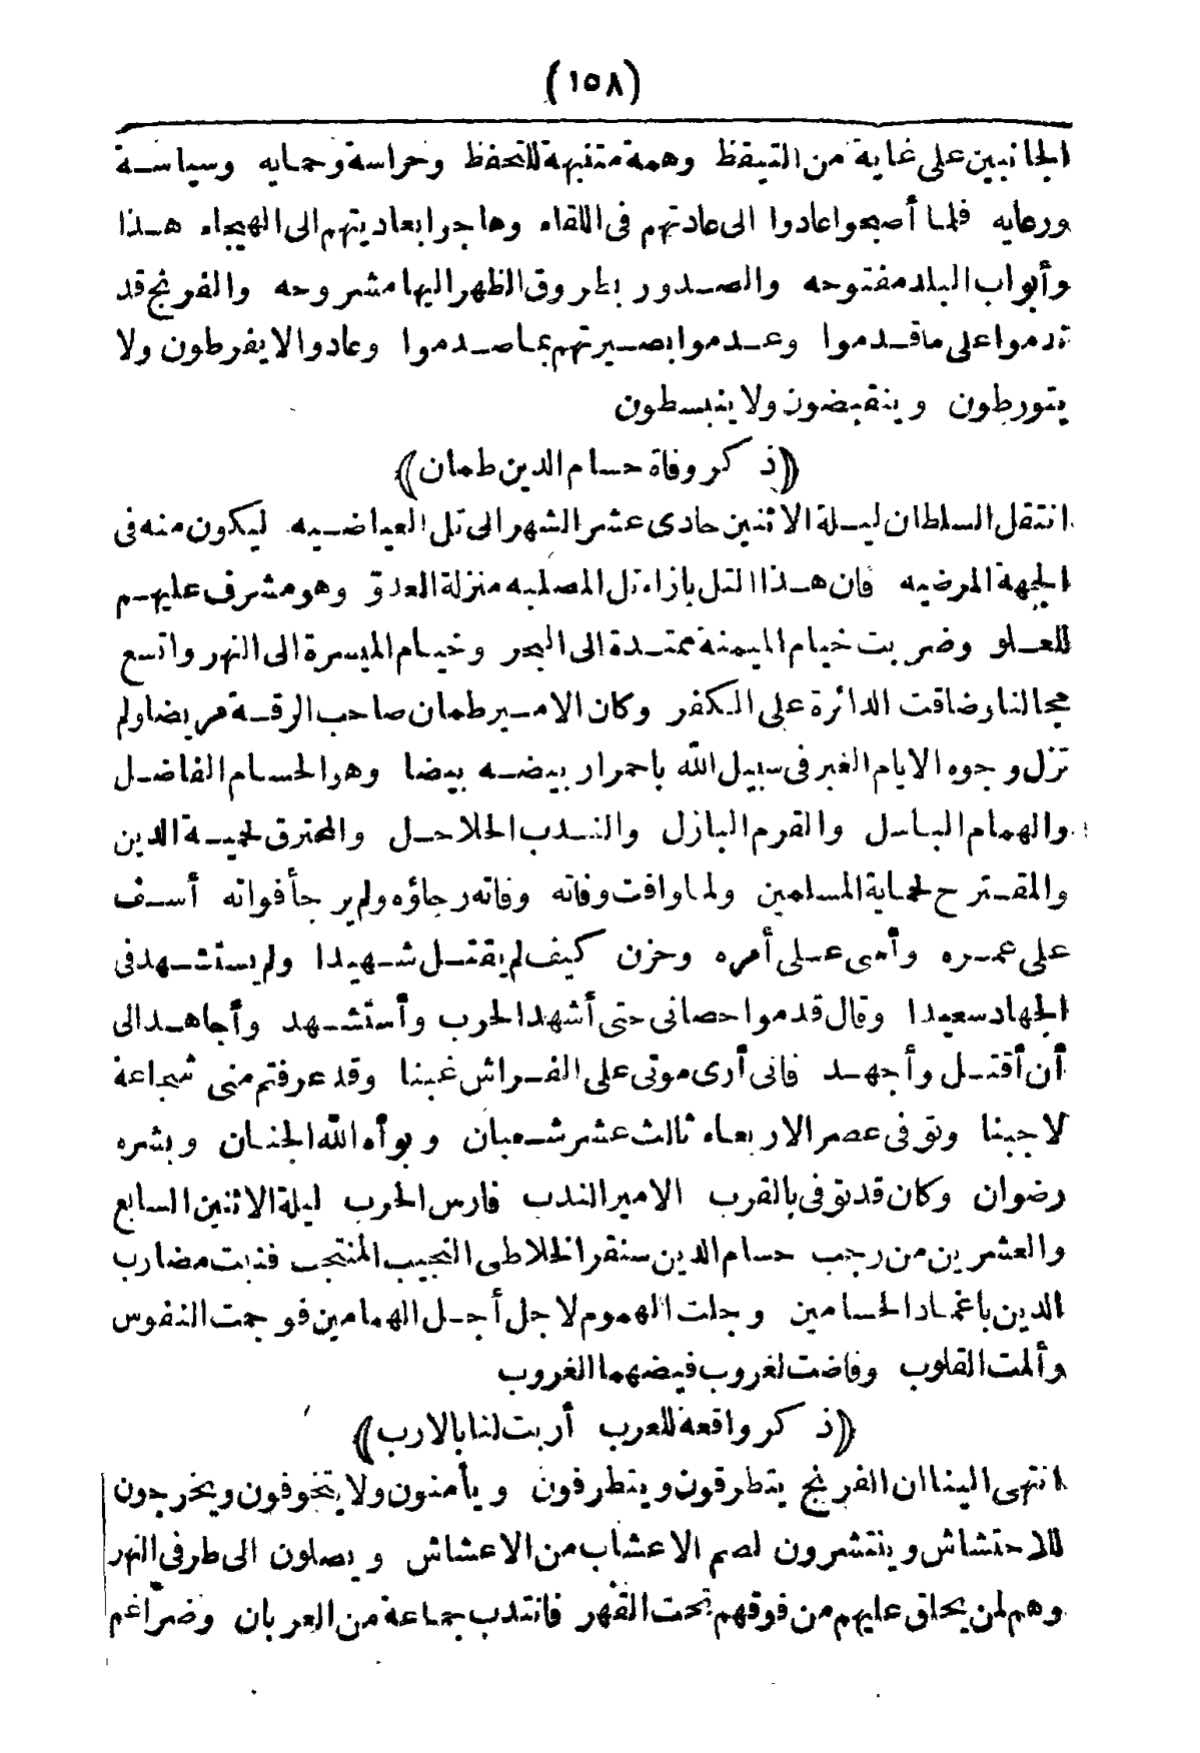 (١٥٨)
الجانبين على غاية من التيقظ وهمة متنبهة للتحفظ وحراسة وحمايه وسياسة
ورعايه فلما أصبحوا عادوا الى عادتهم فى اللقاء وهاجوا بعاديتهم الى الهيجاء هذا
وأبواب البلد مفتوحه والصدور بطروق الظهر اليها مشروحه والفرنج قد
ندموا على ما قدموا وعدموا بصيرتهم بما صدموا وعادوا لا يفرطون ولا
يتورطون وينقبضون ولا ينبسطون
((ذكر وفاة حسام الدين طمان))
انتقل السلطان ليلة الاثنين حادى عشر الشهر الى تل العياضيه ليكون منه فى
الجهة المرضيه فان هذا التل بازاء تل المصلبه منزلة العدوّ وهو مشرف عليهم
للعلو وضربت خيام الميمنة ممتدة الى البحر وخيام الميسرة الى النهر واتسع
مجالنا وضاقت الدائرة على الكفر وكان الامير طمان صاحب الرقة مريضا ولم
تزل وجوه الايام الغبر فى سبيل الله باحمرار بيضه بيضا وهو الحسام الفاضل
والهمام الباسل والقرم البازل والندب الحلاحل والمحترق لحمية الدين
والمقترح لحماية المسلمين ولما وافت وفاته وفاته رجاؤه ولم يرجأ فواته أسف
على عمره وأسى على أمره وحزن كيف لم يقتل شهيدا ولم يستشهد فى
الجهاد سعيدا وقال قدموا حصانى حتى أشهد الحرب وأستشهد وأجاهد الى
أن أقتل وأجهد فانى أرى موتى على الفراش غبنا وقد عرفتم منى شجاعة
لا جبنا وتوفى عصر الاربعاء ثالث عشر شعبان وبوأه الله الجنان وبشره
رضوان وكان قد توفى بالقرب الامير الندب فارس الحرب ليلة الاثنين السابع
والعشرين من رجب حسام الدين سنقر الخلاطى النجيب المنتجب فنبت مضارب
الدين باغماد الحسامين وجلت الهموم لاجل أجل الهمامين فوجمت النفوس
وألمت القلوب وفاضت لغروب فيضهما الغروب
((ذكر واقعة للعرب أربت لنا بالارب))
انتهى الينا ان الفرنج يتطرقون ويتطرفون ويأمنون ولا يتخوفون ويخرجون
للاحتشاش وينتشرون لضم الاعشاب من الاعشاش ويصلون الى طرفى النهر
وهم لمن يحلق عليهم من فوقهم تحت القهر فانتدب جماعة من العربان وضراغم